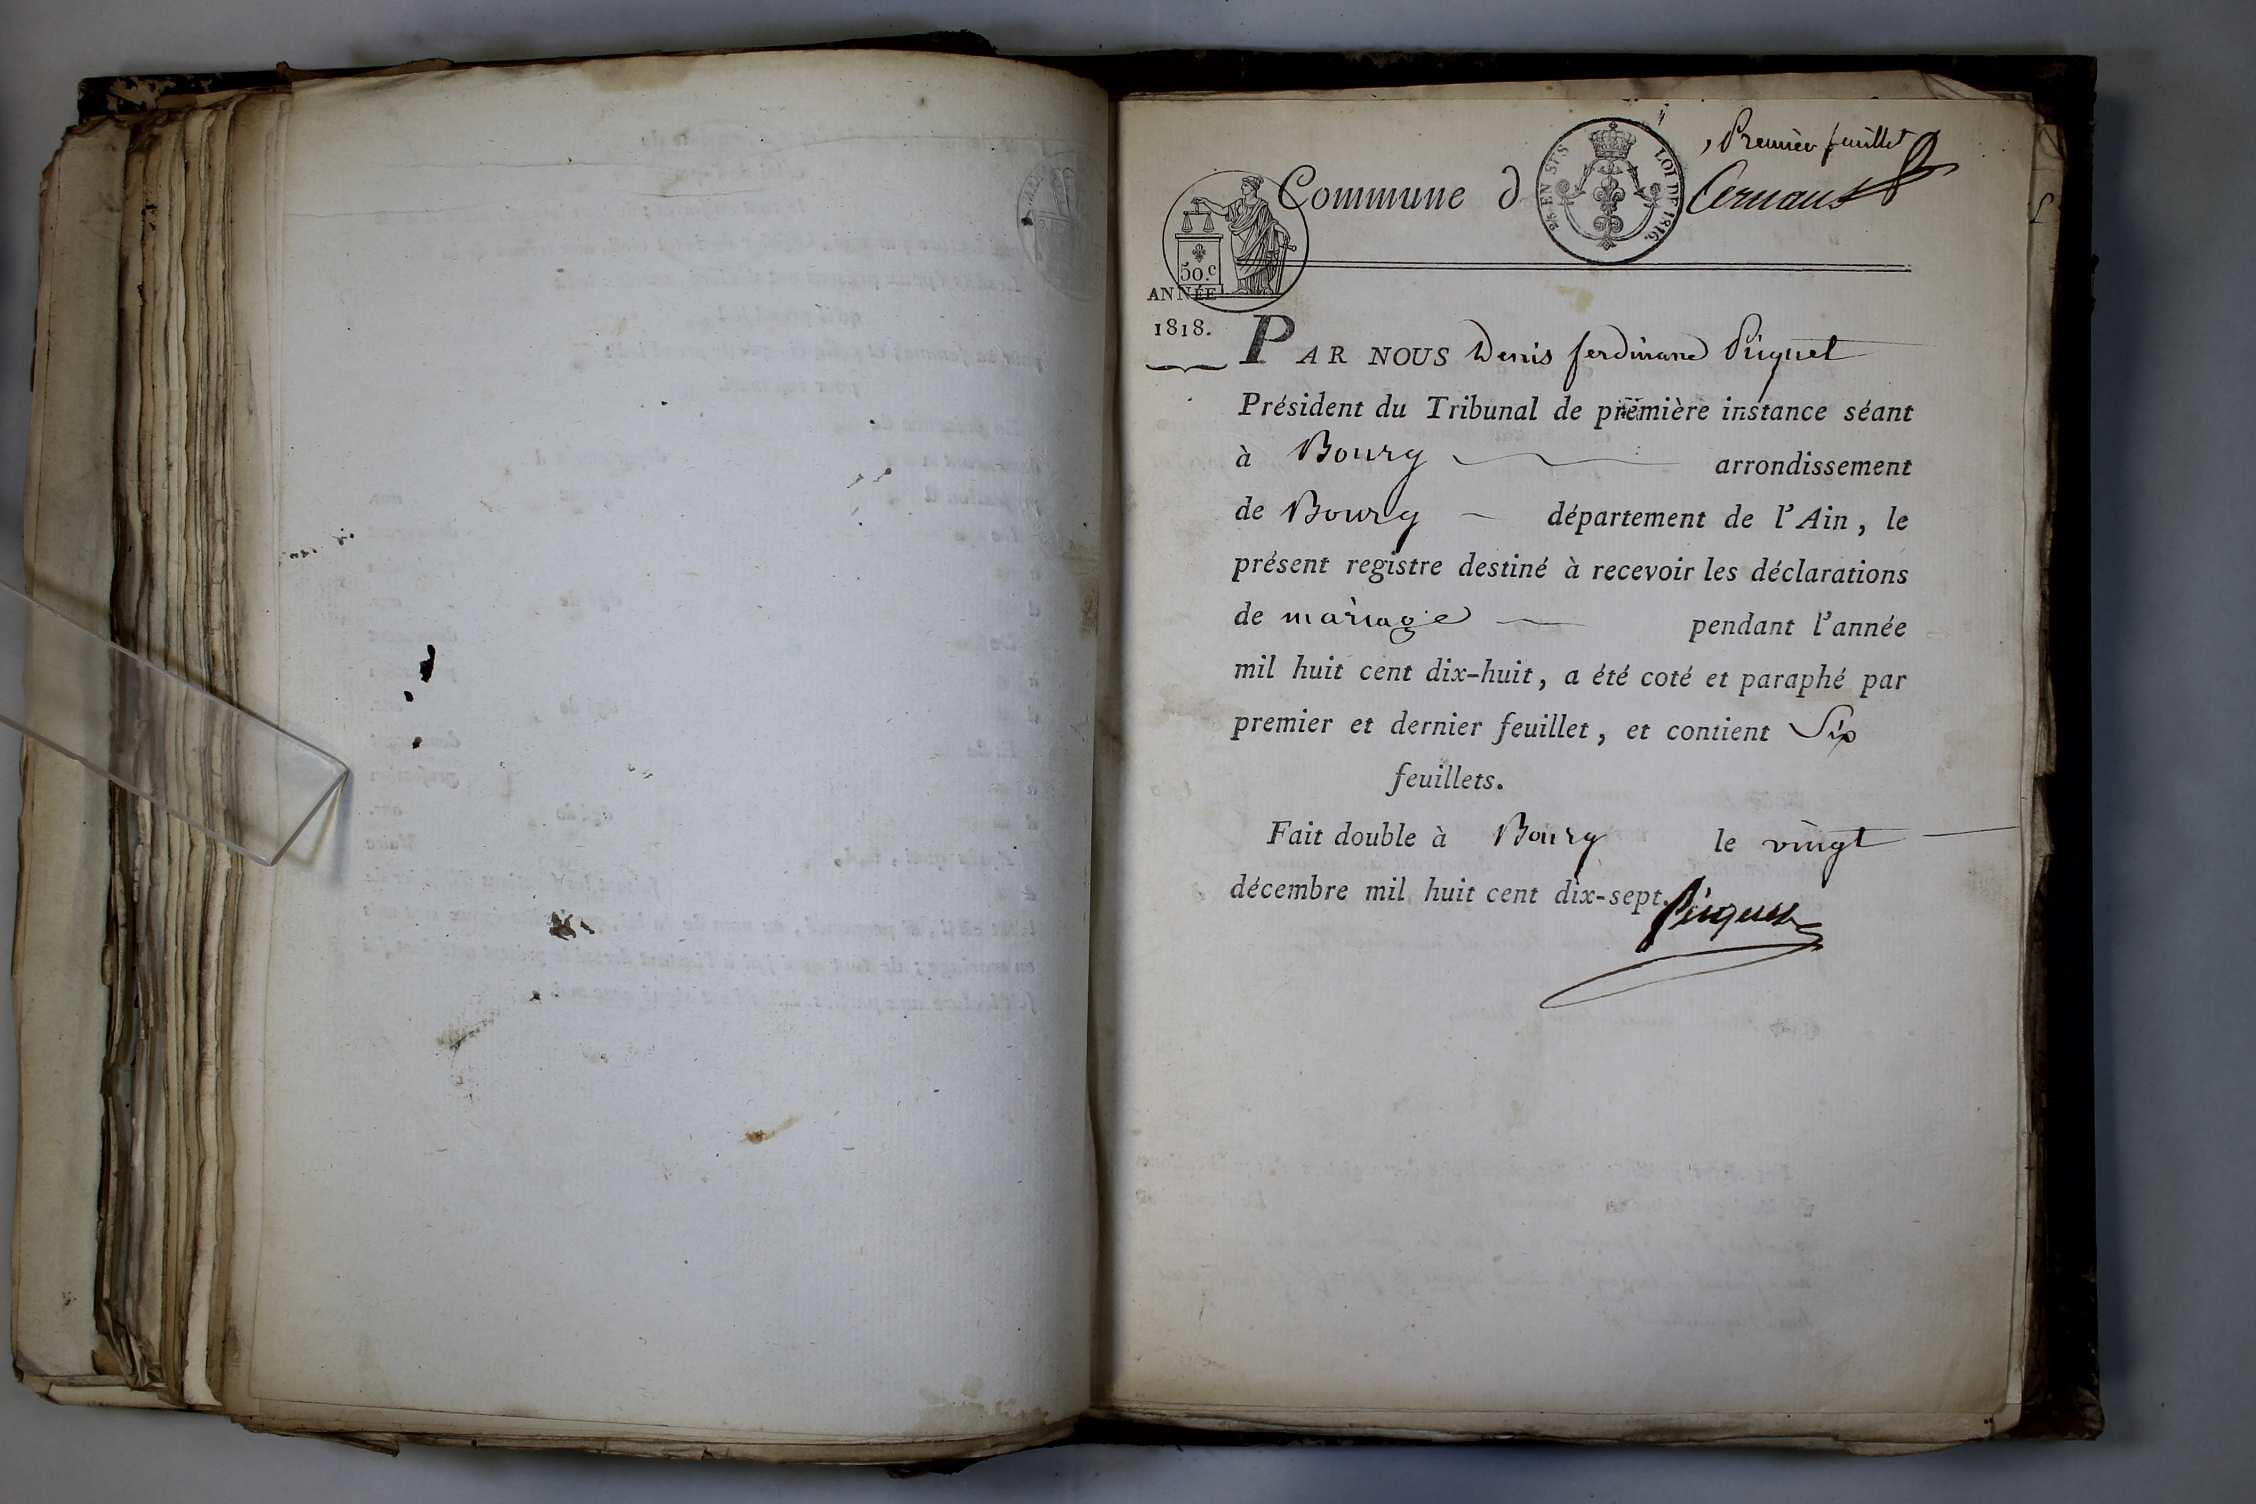 Premier feuillet
Commune d
2.s EN SUS LOI DE 1816.
50.c
ANNÉE
1818.
PAR NOUS Denis ferdinand Piquet
Président du Tribunal de première instance séant
à Bourg arrondissement
de Bourg département de l'Ain, le
présent registre destiné à recevoir les déclarations
de mariage pendant l'année
mil huit cent dix-huit, a été coté et paraphé par
premier et dernier feuillet, et contient Six
feuillets.
Fait double à Bourg le vingt
décembre mil huit cent dix-sept.
Piquet